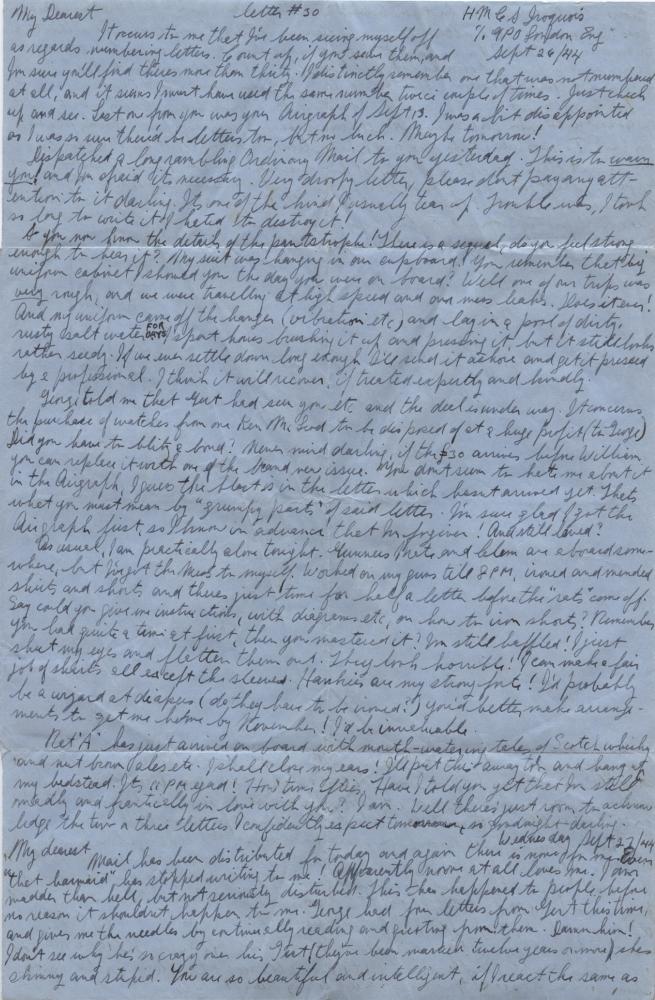 My Dearest letter #30 H.M.C.S Iroquois
% G.P.O London Eng
It occurs to me that I've been seeing myself off Sept 26/44
as regards numbering letters. Count up, if you save them, and
I'm sure you'll find there's more than thirty. I distinctly remember one that was not numbered
at all, and it seems I must have used the same number twice couple of times. Just check
up and see. Last one from you was your Airgraph of Sept 13. I was a bit disappointed
as I was so sure there'd be letters too, but no luck. Maybe tomorrow!
Dispatched a long rambling Ordinary Mail to you yesterday. This is to warn
you! and I'm afraid it necessary. Very droopy letter, please don't pay any att-
ention to it darling. It's one of the kind I usually tear up. Trouble was, I took
so long to write it I hated to destroy it!
So you now know the details of the pantstrophe! There is a sequel, do you feel strong
enough to hear it? My suit was hanging in our cupboard. You remember that big
uniform cabinet I showed you the day you were on board? Well one of our trips was
very rough, and we were travelling at high speed and our mess leaks. Does it ever!
And my uniform came off the hanger (vibration etc) and lay in a pool of dirty,
rusty salt water FOR DAYS! I spent hours brushing it up and pressing it, but it still looks
rather seedy. If we ever settle down long enough I'll send it ashore and get it pressed
by a professional. I think it will recover, if treated expertly and kindly.
George told me that Gert had seen you etc. and the deal is under way. It concerns
the purchase of watches from one Ken McLeod to be disposed of at a huge profit (to George)
Did you have to blitz a bond? Never mind darling, if the $30 arrives before William
you can replace it with one of the brand new issue. You don't seem to hate me about it
in the Airgraph, I guess the blast is in the letter which hasn't arrived yet. That's
what you must mean by "grumpy parts" of said letter. I'm sure glad I got the
Airgraph first, so I know in advance that I'm forgiven! And still loved?
As usual, I am practically alone tonight. Gunners Mate and Clem are aboard some-
where, but I've got the Mess to myself. Worked on my guns till 8 PM, ironed and mended
shirts and shorts and there's just time for half a letter before the "rats" come off.
Say could you give me instructions, with diagrams etc, on how to iron shorts? Remember
you had quite a time at first, then you mastered it? I'm still baffled! I just
shut my eyes and flatten them out. They look horrible! I can make a fair
job of shirts all except the sleeves. Hankies are my strong forte! I'd probably
be a wizard at diapers (do they have to be ironed?) You'd better make arrange-
ments to get me home by November! I'd be invaluable.
Ret "A" has just arrived on board with mouth-watering tales of Scotch whisky
and nut brown ales etc. I shall close my ears! I'll put this away too and bang off
my bedstead. It's 11 PM egad! How time flies, Have I told you yet that I'm still
madly and frantically in love with you? I am. Well there's just room to acknow
ledge the two or three letters I confidently expect tomorrow, so Goodnight darling.
Wednesday Sept 27/44
My dearest
Mail has been distributed for today and again there is none for me. Even
"that barmaid" has stopped writing to me! Apparently no one at all loves me. I am
madder than hell, but not seriously disturbed. This has happened to people before
no reason it shouldn't happen to me. George had four letters from Gert this time,
and gives me the needles by continually reading and quoting from them. Damn him!
I don't see why he's so crazy over his Gert (they've been married twelve years or more) she's
skinny and stupid. You are so beautiful and intelligent, if I react the same, as